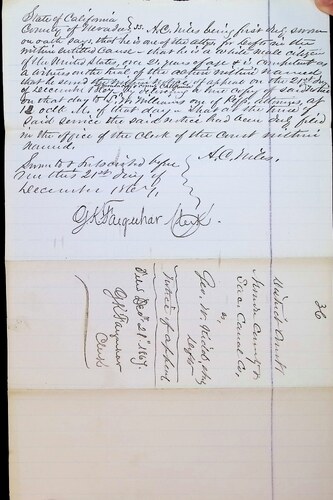 State of California
County of Nevada ss. A.C. Niles being first duly sworn
on oath says that he is one of the attys for Defts in the
within entitled cause – that he is a white male citizen
of the United States, over 21 years of age & is competent as
a witness on the trial of the action within named
that he served the within notice of appeal on the 21st day
of December 1867, by delivering a true copy of said notice
on that day to Williams one of Plffs attorneys, at
12 oclk M. of that day. That at the time of
said service the said notice had been duly filed
in the office of the Clerk of the Court within
named.
Sworn to & subscribed before
me this 21st day of
December 1867,
A.C. Niles.
G K Farquhar Clerk
36
District Court
County &
Sac. Canal Co.,
vs,
Geo. W. Kidd, et als
Defts
Notice of Appeal
Filed Dec. 21st 1867.
G K Farquhar
Clerk